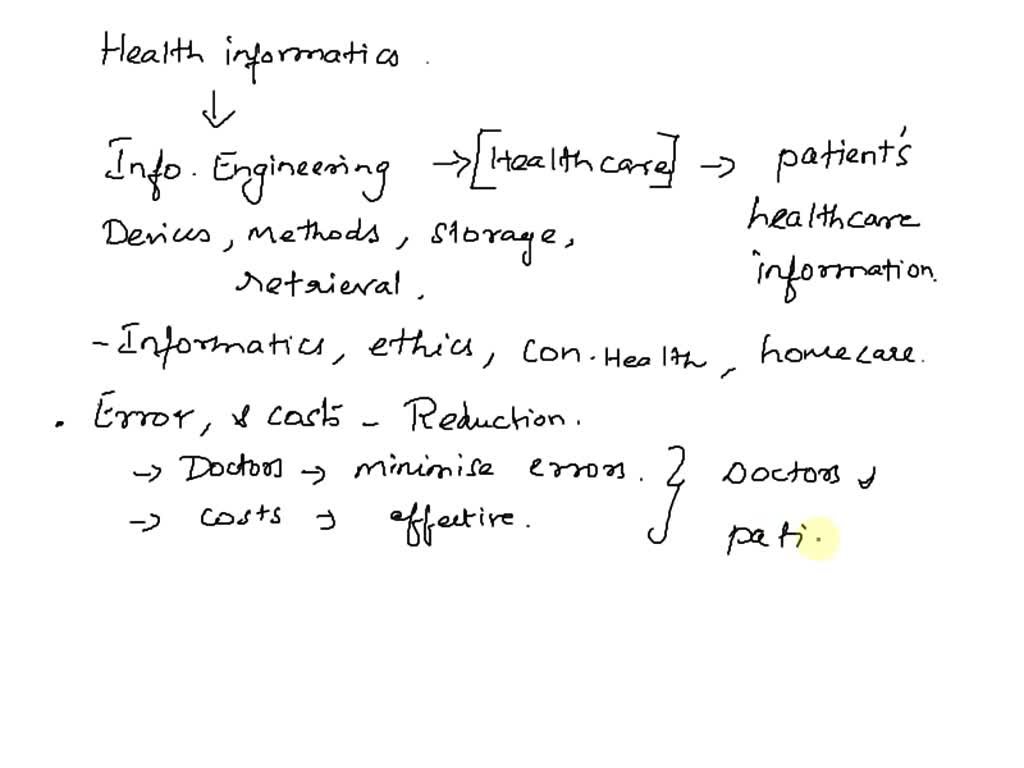 Health informatics.
↓
Info. Engineering → [Healthcare] → patient's
healthcare
information.
Devices, methods, storage,
retrieval,
- Informatics, ethics, con. Health, homecare.
. Error, & costs - Reduction.
→ Doctors → minimise errors. } Doctors &
→ costs → effective. pati.